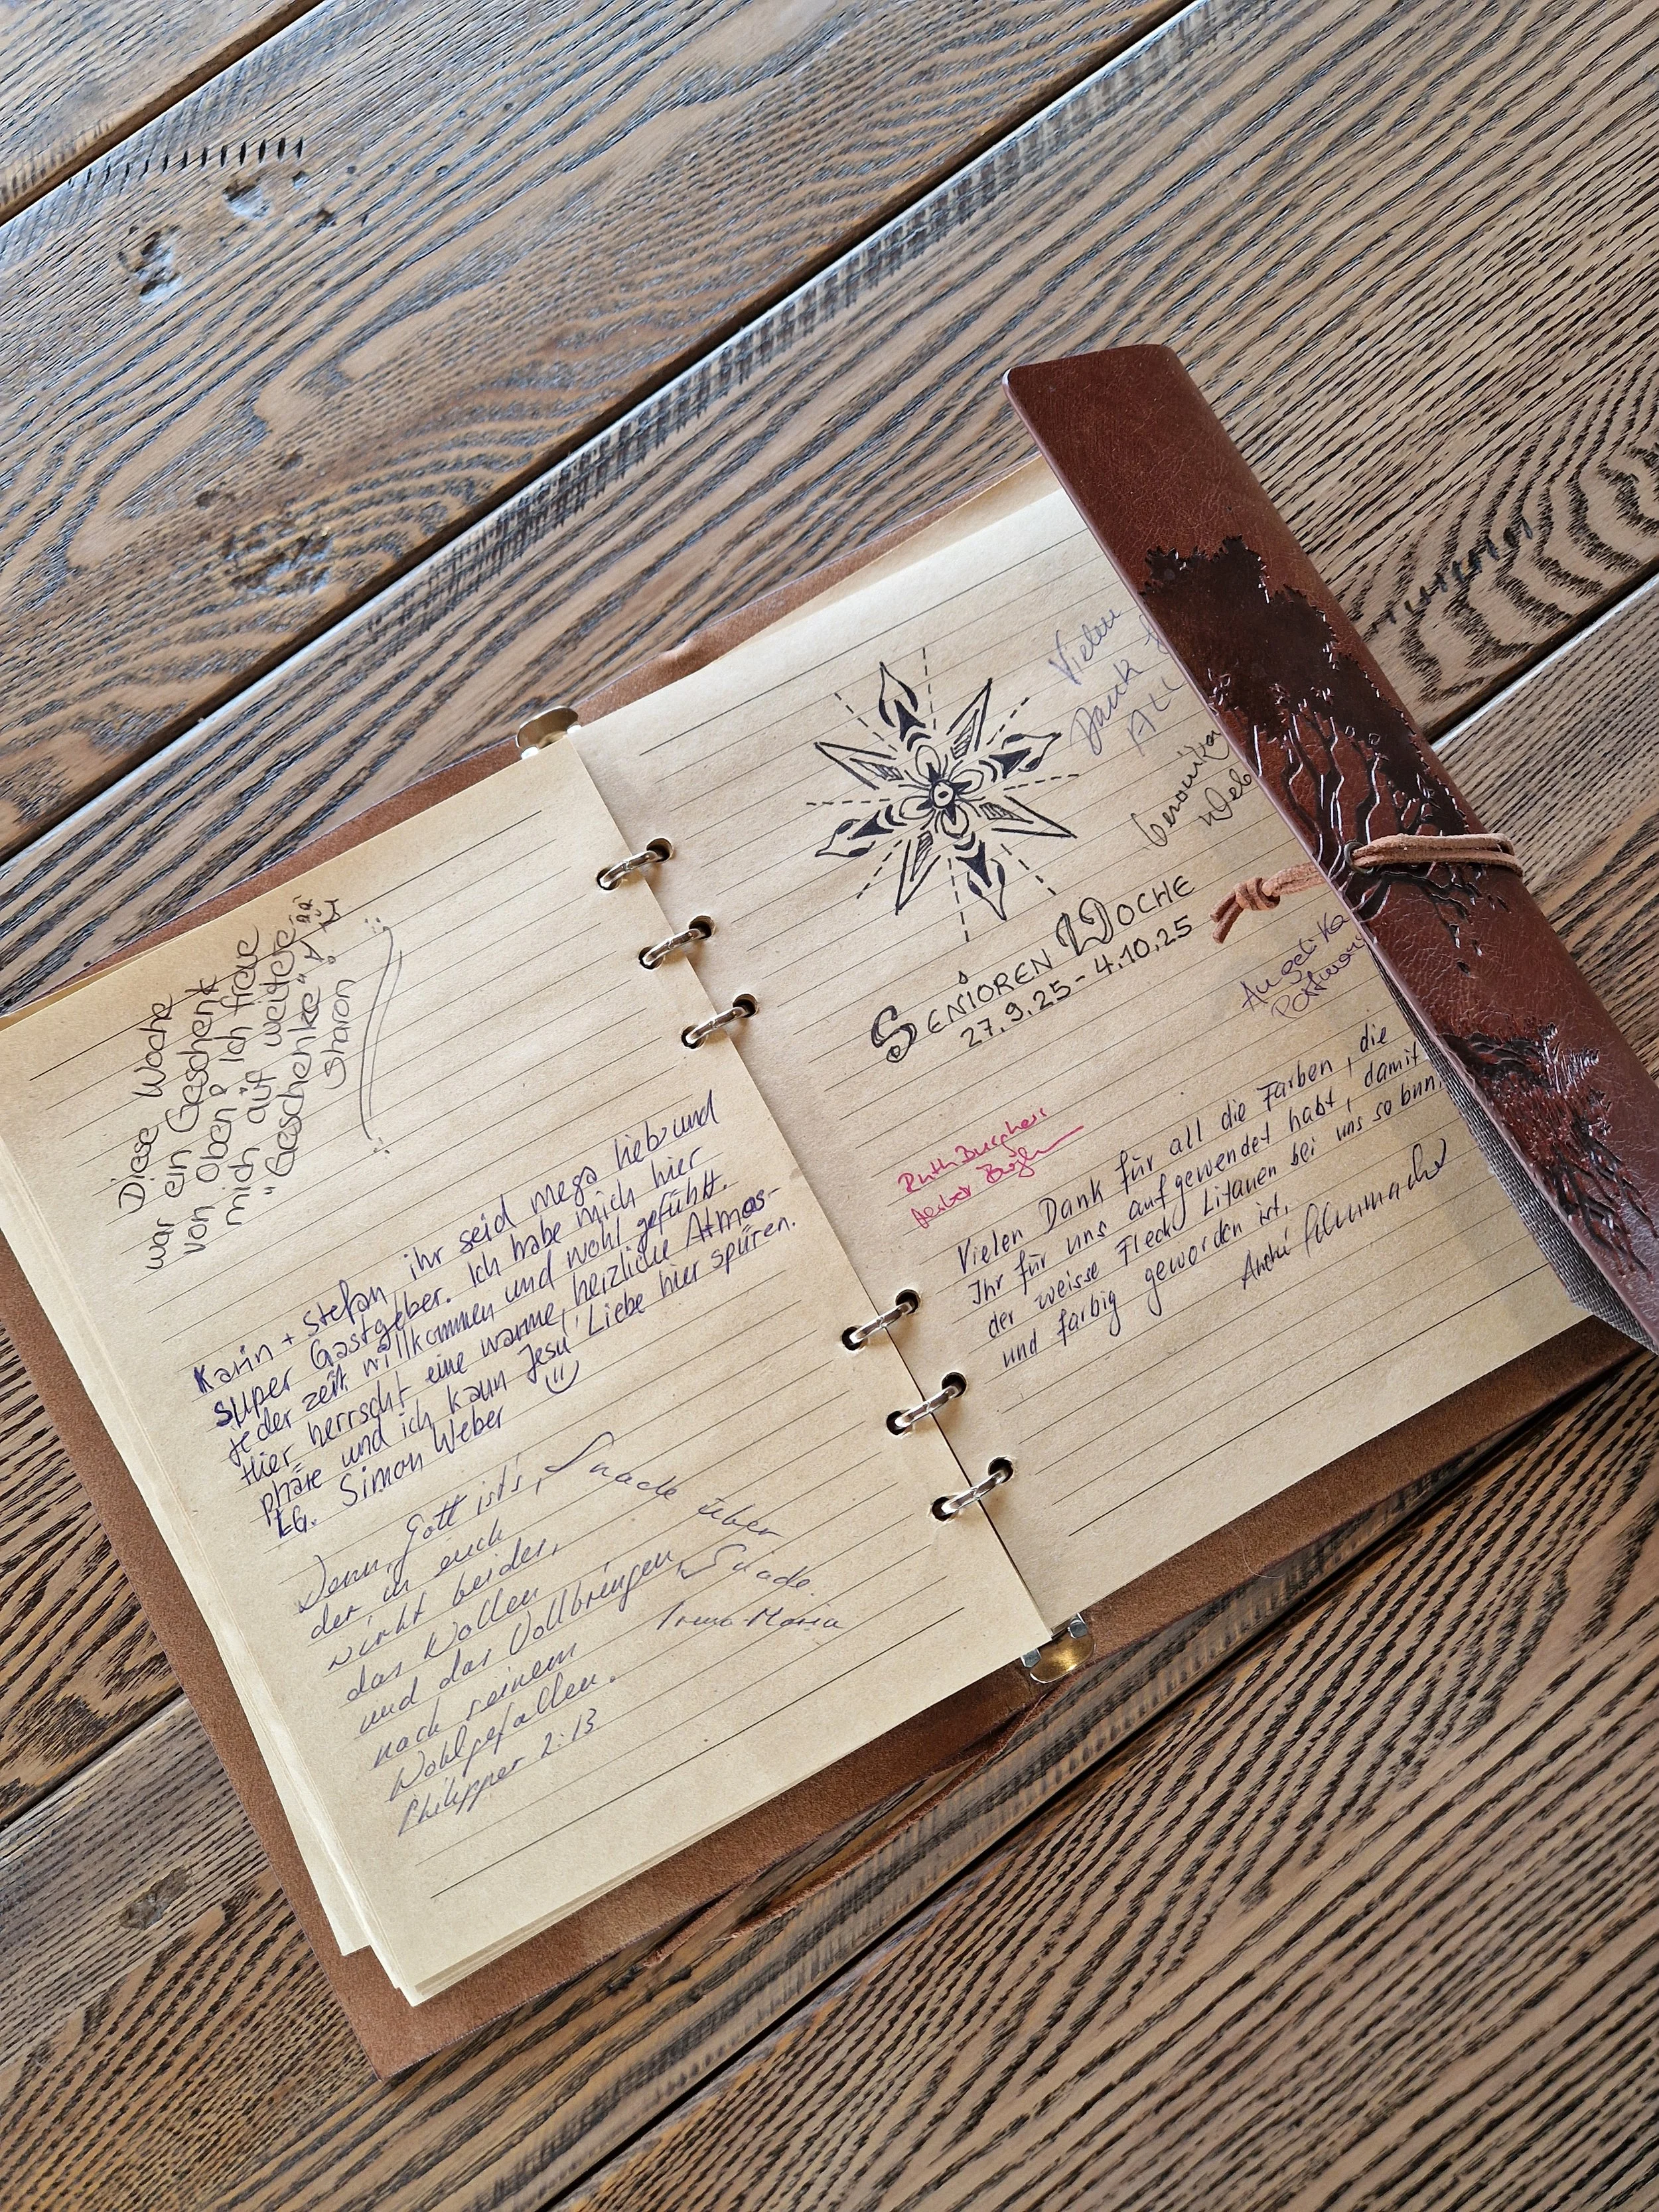 Diese Woche
war ein Geschenk
von Oben! Ich freue
mich auf weitere
"Geschenke"
Sharon
Karin + Stefan, ihr seid mega lieb und
super Gastgeber. Ich habe mich hier
jeder zeit willkommen und wohl gefühlt.
Hier herrscht eine warme, herzliche Atmos-
phäre und ich kann Jesu Liebe hier spüren.
LG. Simon Weber
Denn Gott ist's,
der in euch
wirkt beides,
das Wollen
und das Vollbringen
nach seinem
Wohlgefallen.
Philipper 2:13
Gnade über
Gnade.
Maria
Vielen
Dank
ALL
Veronika
Web
SENIOREN WOCHE
27.9.25 - 4.10.25
Angelika
Ruth
Vielen Dank für all die Farben, die
Ihr für uns aufgewendet habt, damit
der weisse Fleck Litauen bei uns so bun
und farbig geworden ist.
André